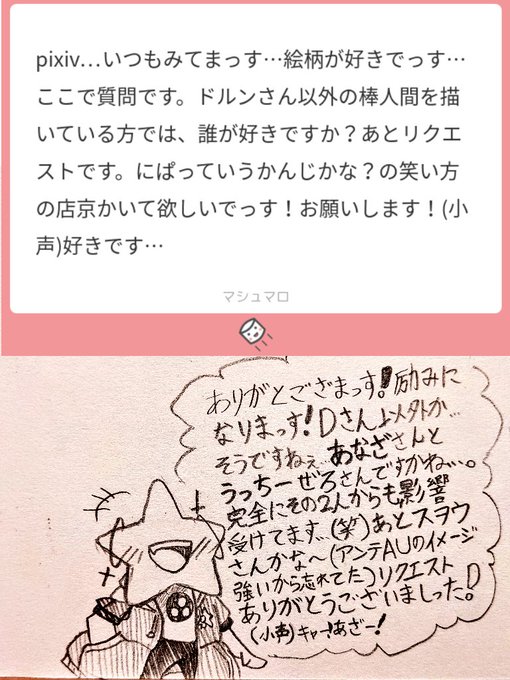 pixiv…いつもみてまっす…絵柄が好きでっす…
ここで質問です。ドルンさん以外の棒人間を描
いている方では、誰が好きですか？あとリクエ
ストです。にぱっていうかんじかな？の笑い方
の店京かいて欲しいでっす！お願いします！(小
声)好きです…
マシュマロ
ありがとござまっす!励みに
なりまっす!Dさん以外か…
そうですねぇ…あなざさんと
うっちーぜろさんですかね…。
完全にその2人からも影響
受けてます…(笑)あとスヲウ
さんかな～(アンテAUのイメージ
強いから忘れてた)リクエスト
ありがとうございましった!D
(小声)キャー!あざー!